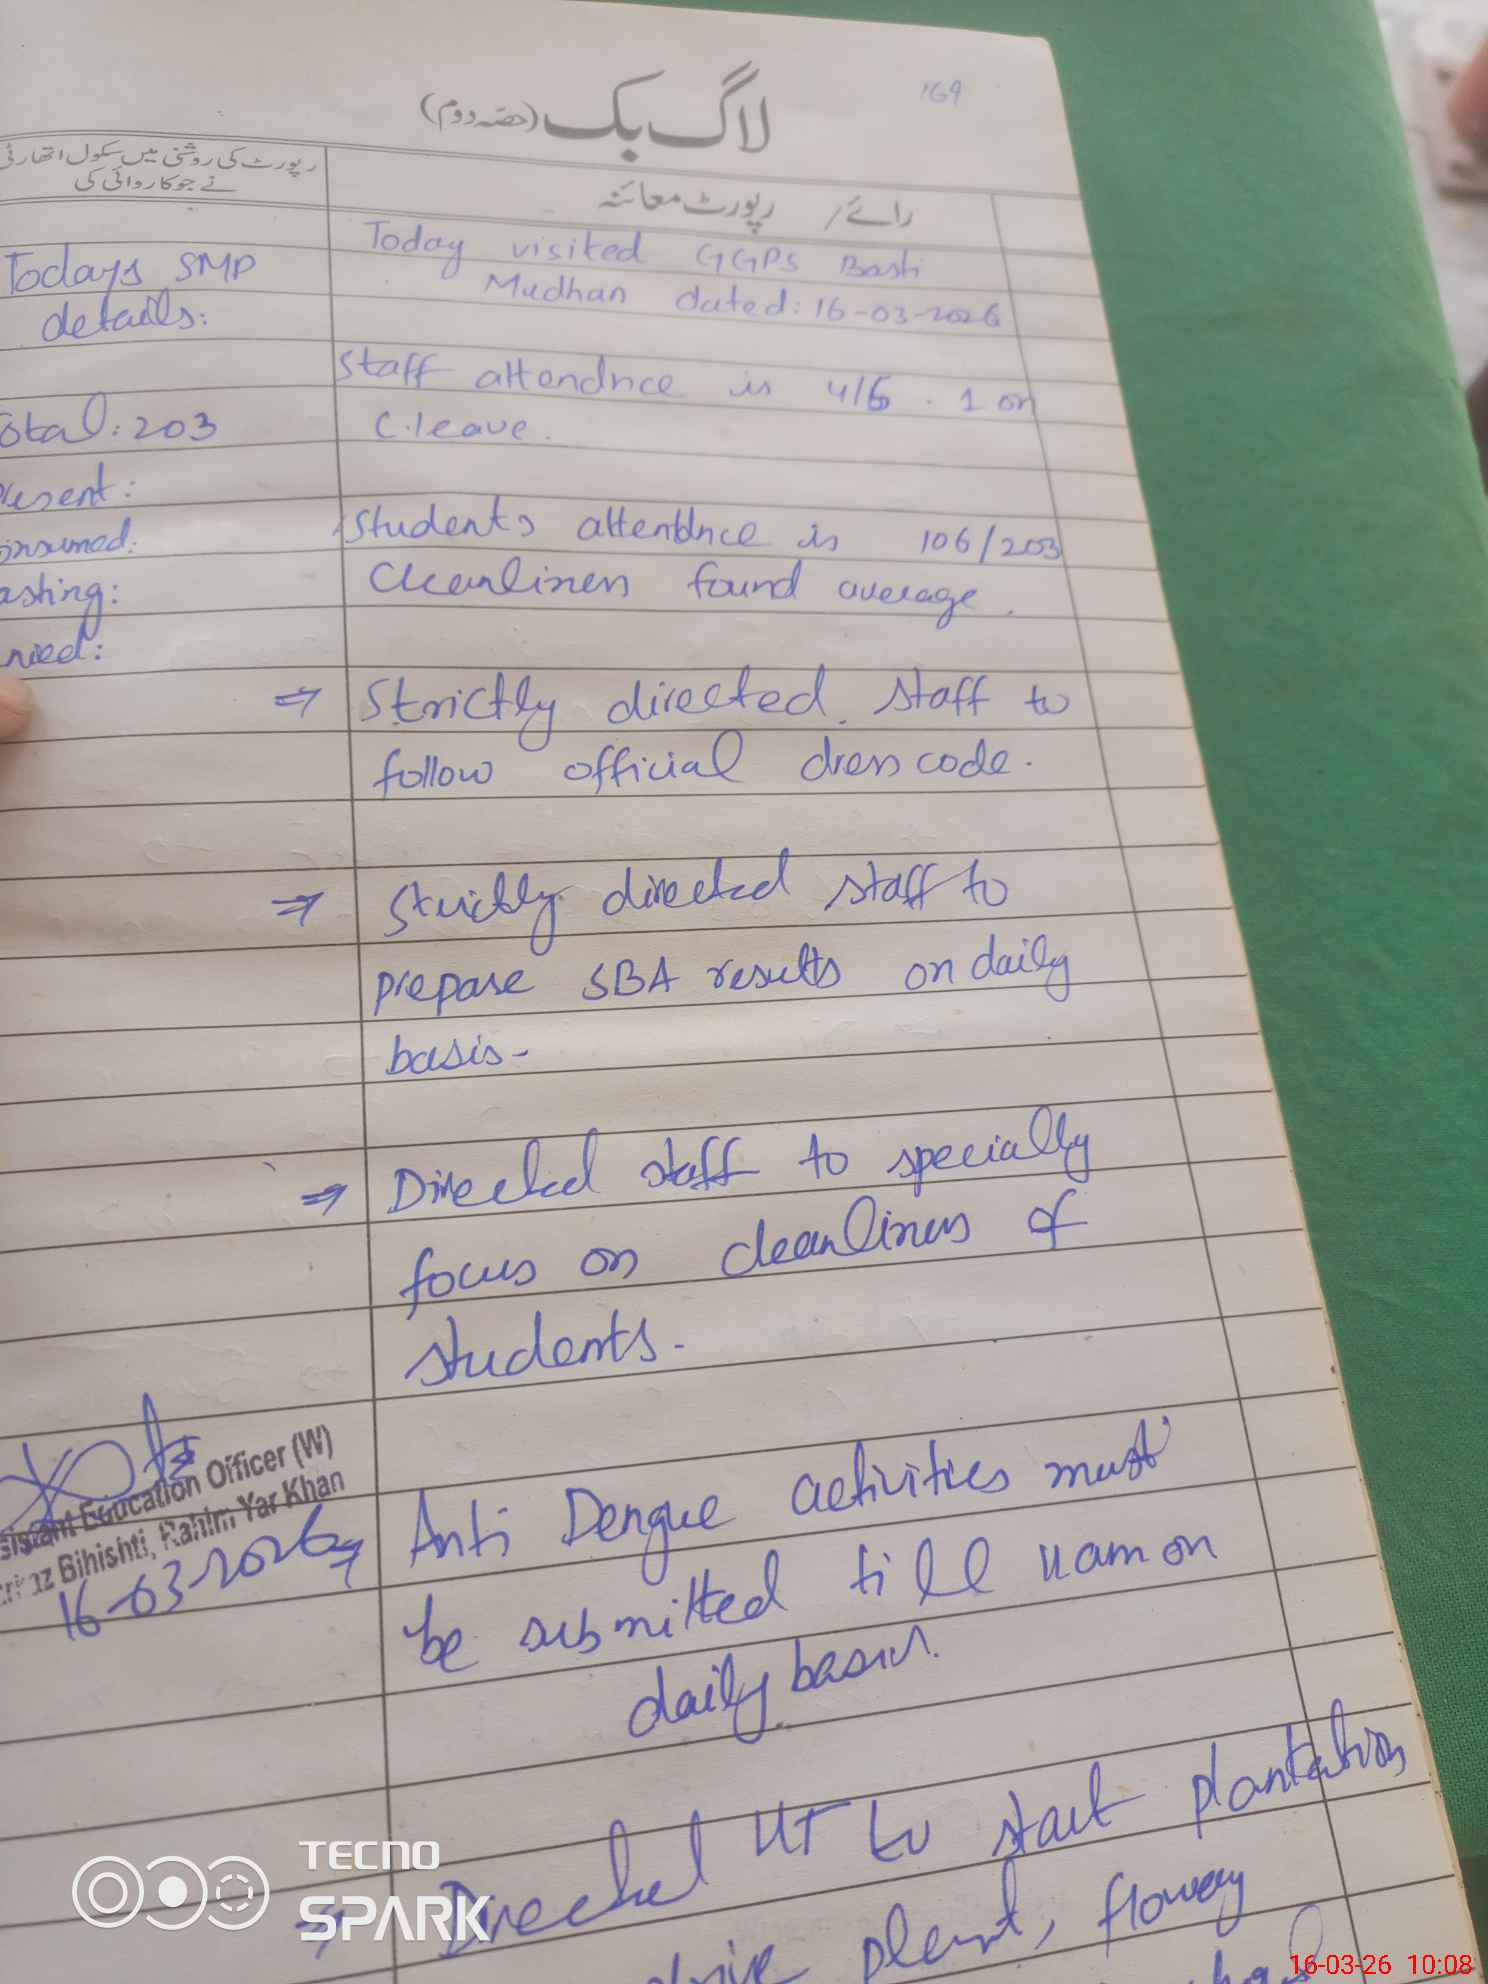 169
لاگ بک (حصہ دوم)
رائے / رپورٹ معائنہ
رپورٹ کی روشنی میں سکول اتھارٹی
نے جو کاروائی کی
Today visited GGPS Basti
Mudhan dated: 16-03-2026
Staff attendnce is 4/5 . 1 on
C.leave.
Students attendnce is 106/203
Cleanliness found average.
⇒ Strictly directed staff to
follow official dress code.
⇒ Strictly directed staff to
prepare SBA results on daily
basis-
⇒ Directed staff to specially
focus on cleanliness of
students.
⇒ Anti Dengue activities must
be submitted till 11am on
daily basis.
⇒ Directed HT to start plantation
plant, flowery
Todays SMP
details:
otal: 203
resent:
onsumed:
asting:
nied:
sistant Education Officer (W)
Bihishti, Rahim Yar Khan
16-03-2026
TECNO
SPARK
16-03-26 10:08